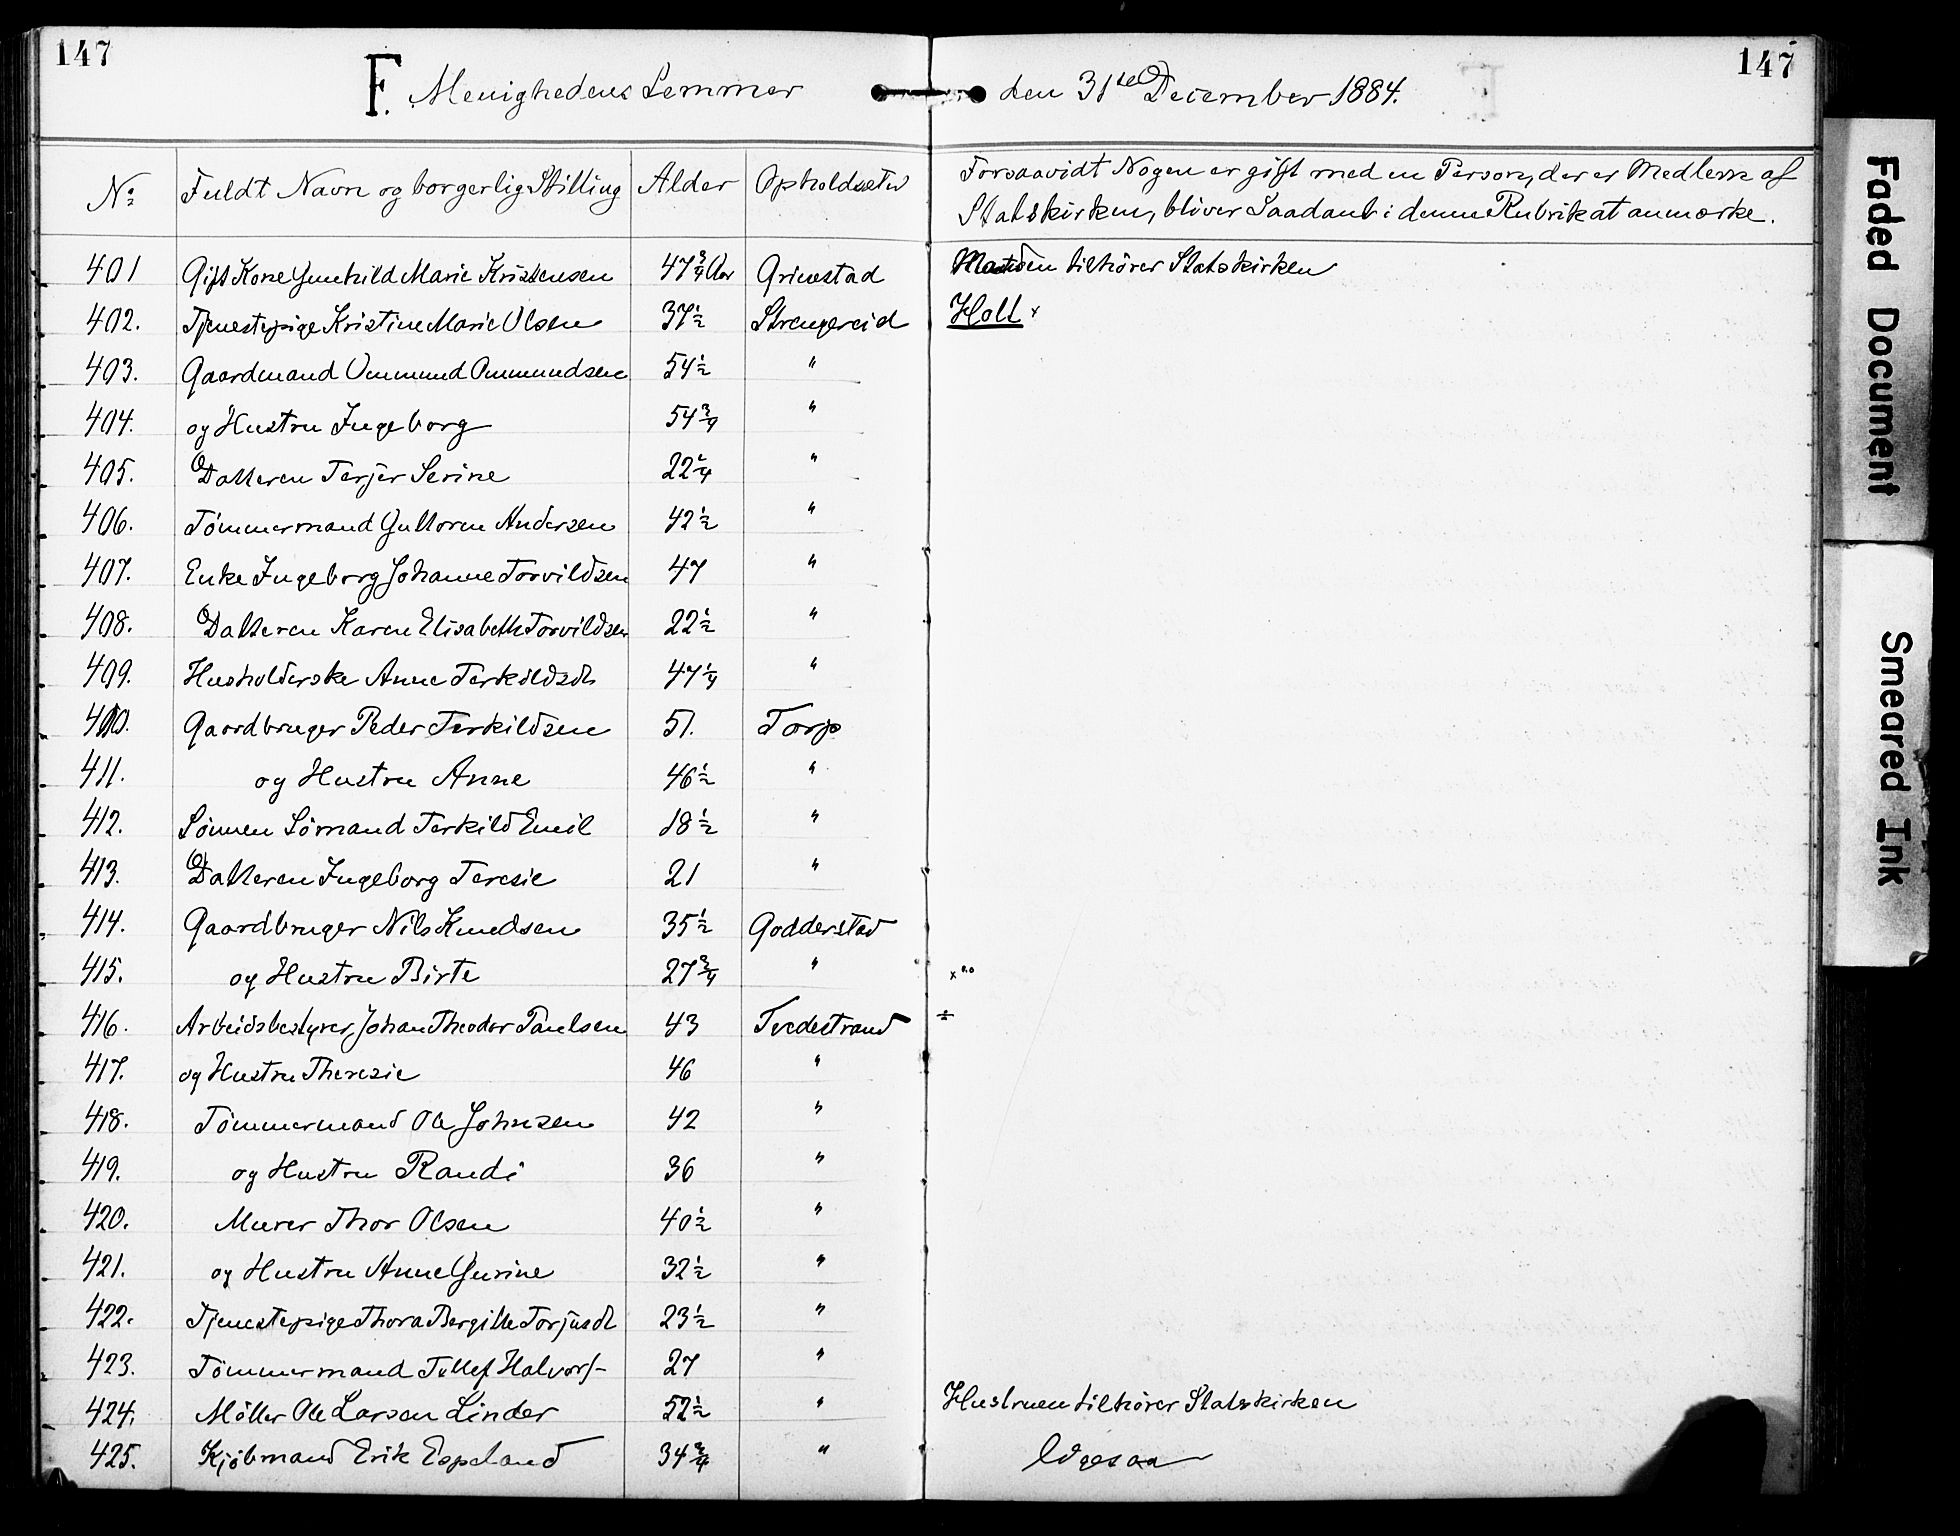 147
147
F. Menighedens Lemmer den 31te December 1884.
No Fuldt Navn og borgerlig Stilling Alder Opholdssted Forsaavidt Nogen er gift med en Person, der er Medlem af
Statskirken, bliver Saadant i denne Rubrik at anmærke.
401 Gift Kone Gunhild Marie Kristensen 47 3/4 Aar Grimstad Manden tilhører Statskirken
402. Tjenestepige Kristine Marie Olsen 37 1/2 Strengereid Holt x
403. Gaardmand Ommund Ommundsen 54 1/2 "
404. og Hustru Ingeborg 54 3/4 "
405. Datteren Terjer Serine 22 1/4 "
406. Tömmermand Guttorm Andersen 42 1/2 "
407. Enke Ingeborg Johanne Torvildsen 47 "
408. Datteren Karen Elisabeth Torvildsen 22 1/2 "
409. Husholderske Anne Terkildsdt 47 1/4 "
410. Gaardbruger Peder Terkildsen 51. Torp
411. og Hustru Anne 46 1/2 "
412. Sönnen Sömand Terkild Emil 18 1/2 "
413. Datteren Ingeborg Teresie 21 "
414. Gaardbruger Nils Knudsen 35 1/2 Godderstad
415. og Hustru Birte 27 3/4 " x
416. Arbeidsbestyrer, Johan Theodor Paulsen 43 Tvedestrand ÷
417. og Hustru Theresie 46 "
418. Tömmermand Ole Johnsen 42 "
419. og Hustru Randi 36 "
420. Murer Thor Olsen 40 1/2 "
421. og Hustru Anne Gurine 32 1/2 "
422. Tjenestepige Thora Bergitte Torjusdt 23 1/2 "
423. Tömmermand Tellef Halvors- 27 "
424. Möller Ole Larsen Linder 52 1/2 " Hustruen tilhører Statskirken
425. Kjöbmand Erik Espeland 34 3/4 "
Faded Document
Smeared Ink